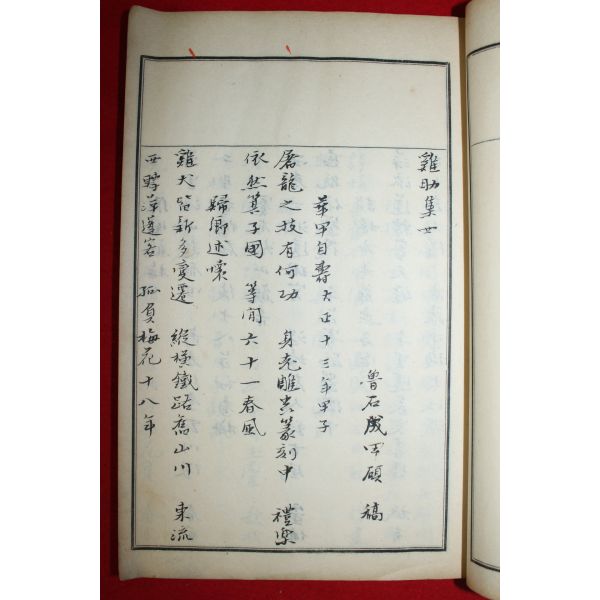 雞肋集廿
魯石成田碩 稿
華甲自壽 大正十三年甲子
屠龍之技有何功 身老雕虫篆刻中 禮樂
依然箕子國 等閒六十一春風
歸鄉述懷
雞犬皆新多變遷 縱橫鐵路舊山川 東流
西轉萍蓬客 孤負梅花十八年